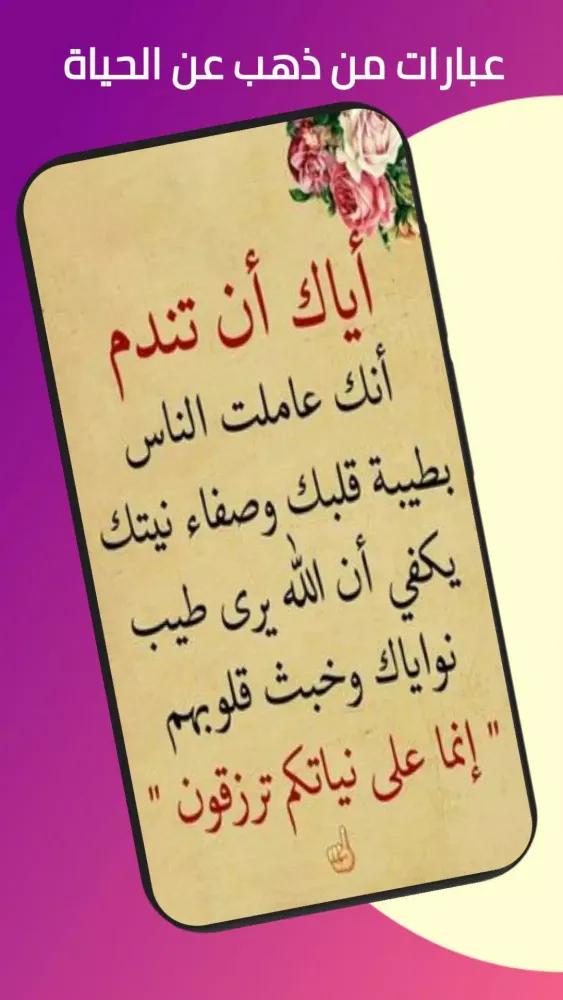 عبارات من ذهب عن الحياة
أياك أن تندم
أنك عاملت الناس
بطيبة قلبك وصفاء نيتك
يكفي أن الله يرى طيب
نواياك وخبث قلوبهم
" إنما على نياتكم ترزقون "